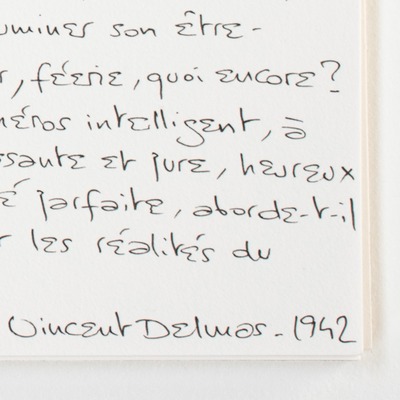 uminer son être-
r, féerie, quoi encore?
héros intelligent, à
ssante et pure, heureux
é parfaite, aborde-t-il
r les réalités du
Vincent Delmas - 1942